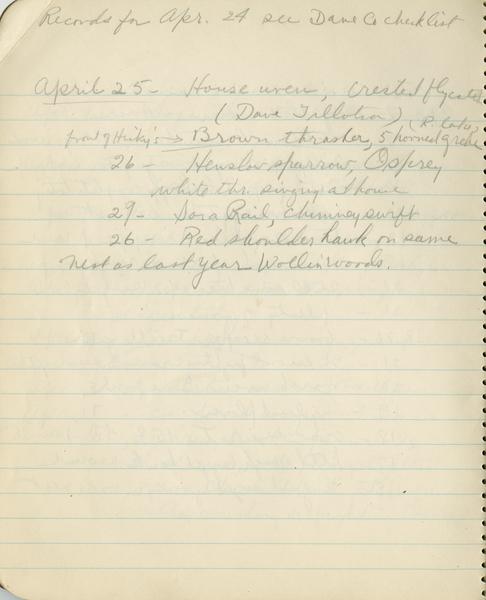 Records for Apr. 24 see Dane Co checklist
April 25 - House wren, crested flycatcher
(Dave Tillotson) (R. Lake)
front of Hicky's → Brown thrasher, 5 horned grebe
26 - Henslow sparrow, Osprey
white thr. singing at house
29 - Sora Rail, chimney swift
26 - Red shoulder hawk on same
nest as last year Wollin woods.